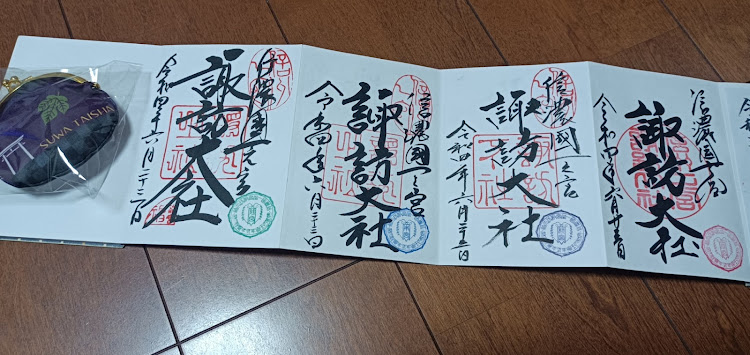 SUWA TAISHA
信濃国一之宮
諏訪大社
令和四年六月二十三日
信濃國一之宮
諏訪大社
令和四年六月二十三日
信濃國一之宮
諏訪大社
令和四年六月二十三日
信濃国一之宮
諏訪大社
令和四年六月廿三日